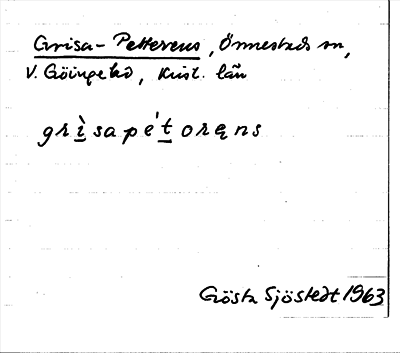 Grisa-Petterens, Önnestads sn,
V. Göinge hd, Krist. län
grìsapét oręns
Gösta Sjöstedt 1963